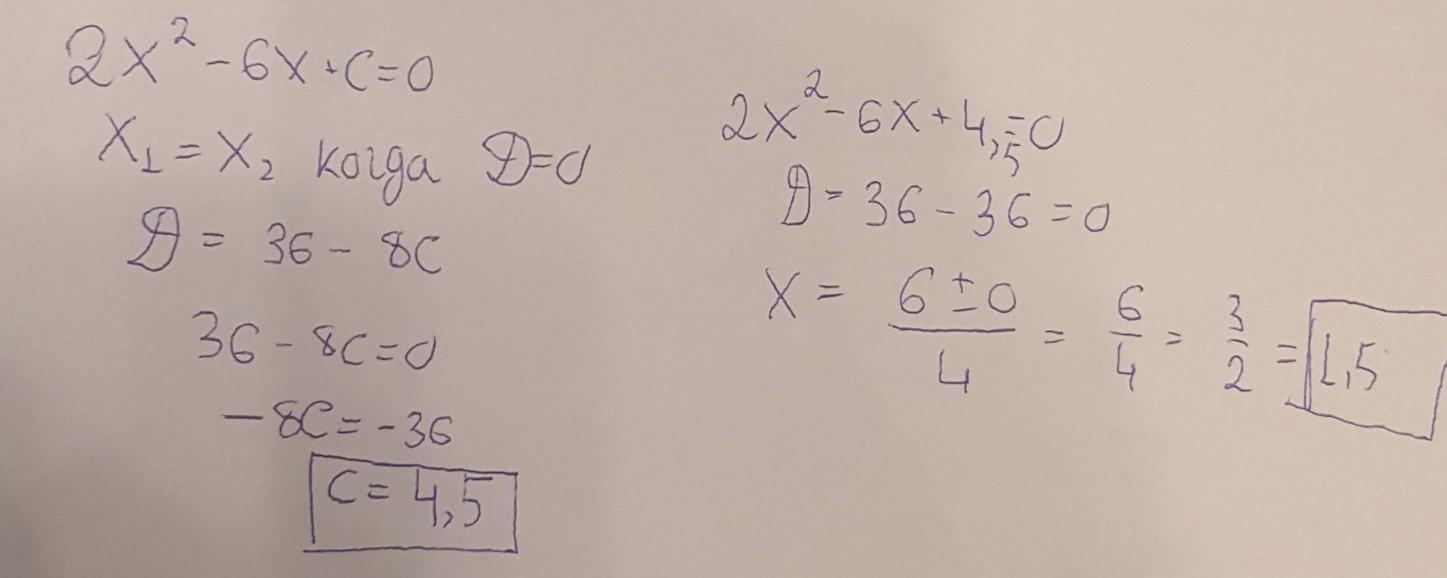 2x² - 6x + c = 0
x₁ = x₂ когда D = 0
D = 36 - 8c
36 - 8c = 0
-8c = -36
c = 4,5
2x² - 6x + 4,5 = 0
D = 36 - 36 = 0
x = (6 ± 0)/4 = 6/4 = 3/2 = 1,5